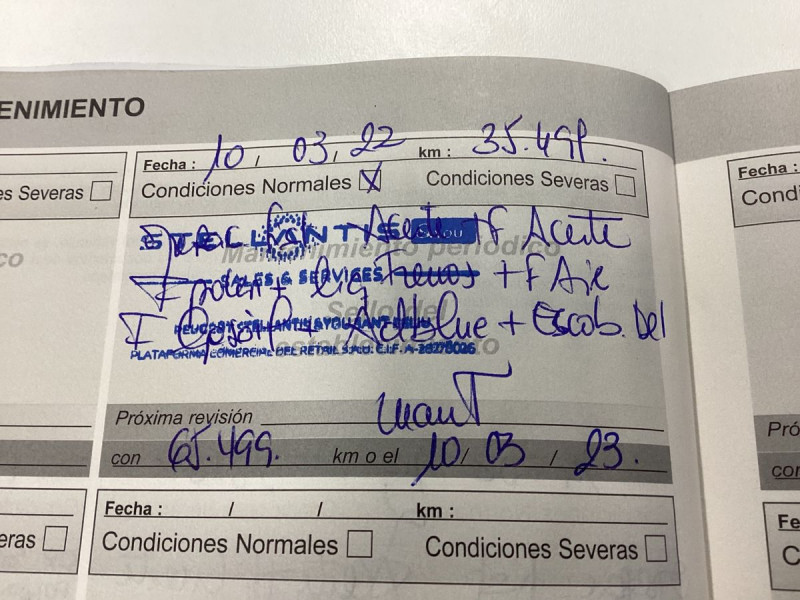 ENIMIENTO
Fecha : 10 / 03, 22 km : 35.499.
es Severas
Condiciones Normales X Condiciones Severas
Fecha :
Condi
STELLANTIS &YOU Aceite + F Aceite
Mantenimiento periódico
co
SALES & SERVICES
F + Liq Frenos + F Aire
Sello del
PEUGEOT STELLANTIS &YOU
F Gasoil + Adblue + Escob. Del
establecimiento
PLATAFORMA COMERCIAL DEL RETAIL S.A.U. C.I.F. A-28278026
Próxima revisión
Pró
con 65.499. km o el 10/ 03 / 23.
con
Fecha : / / km :
Fe
eras
Condiciones Normales Condiciones Severas
C